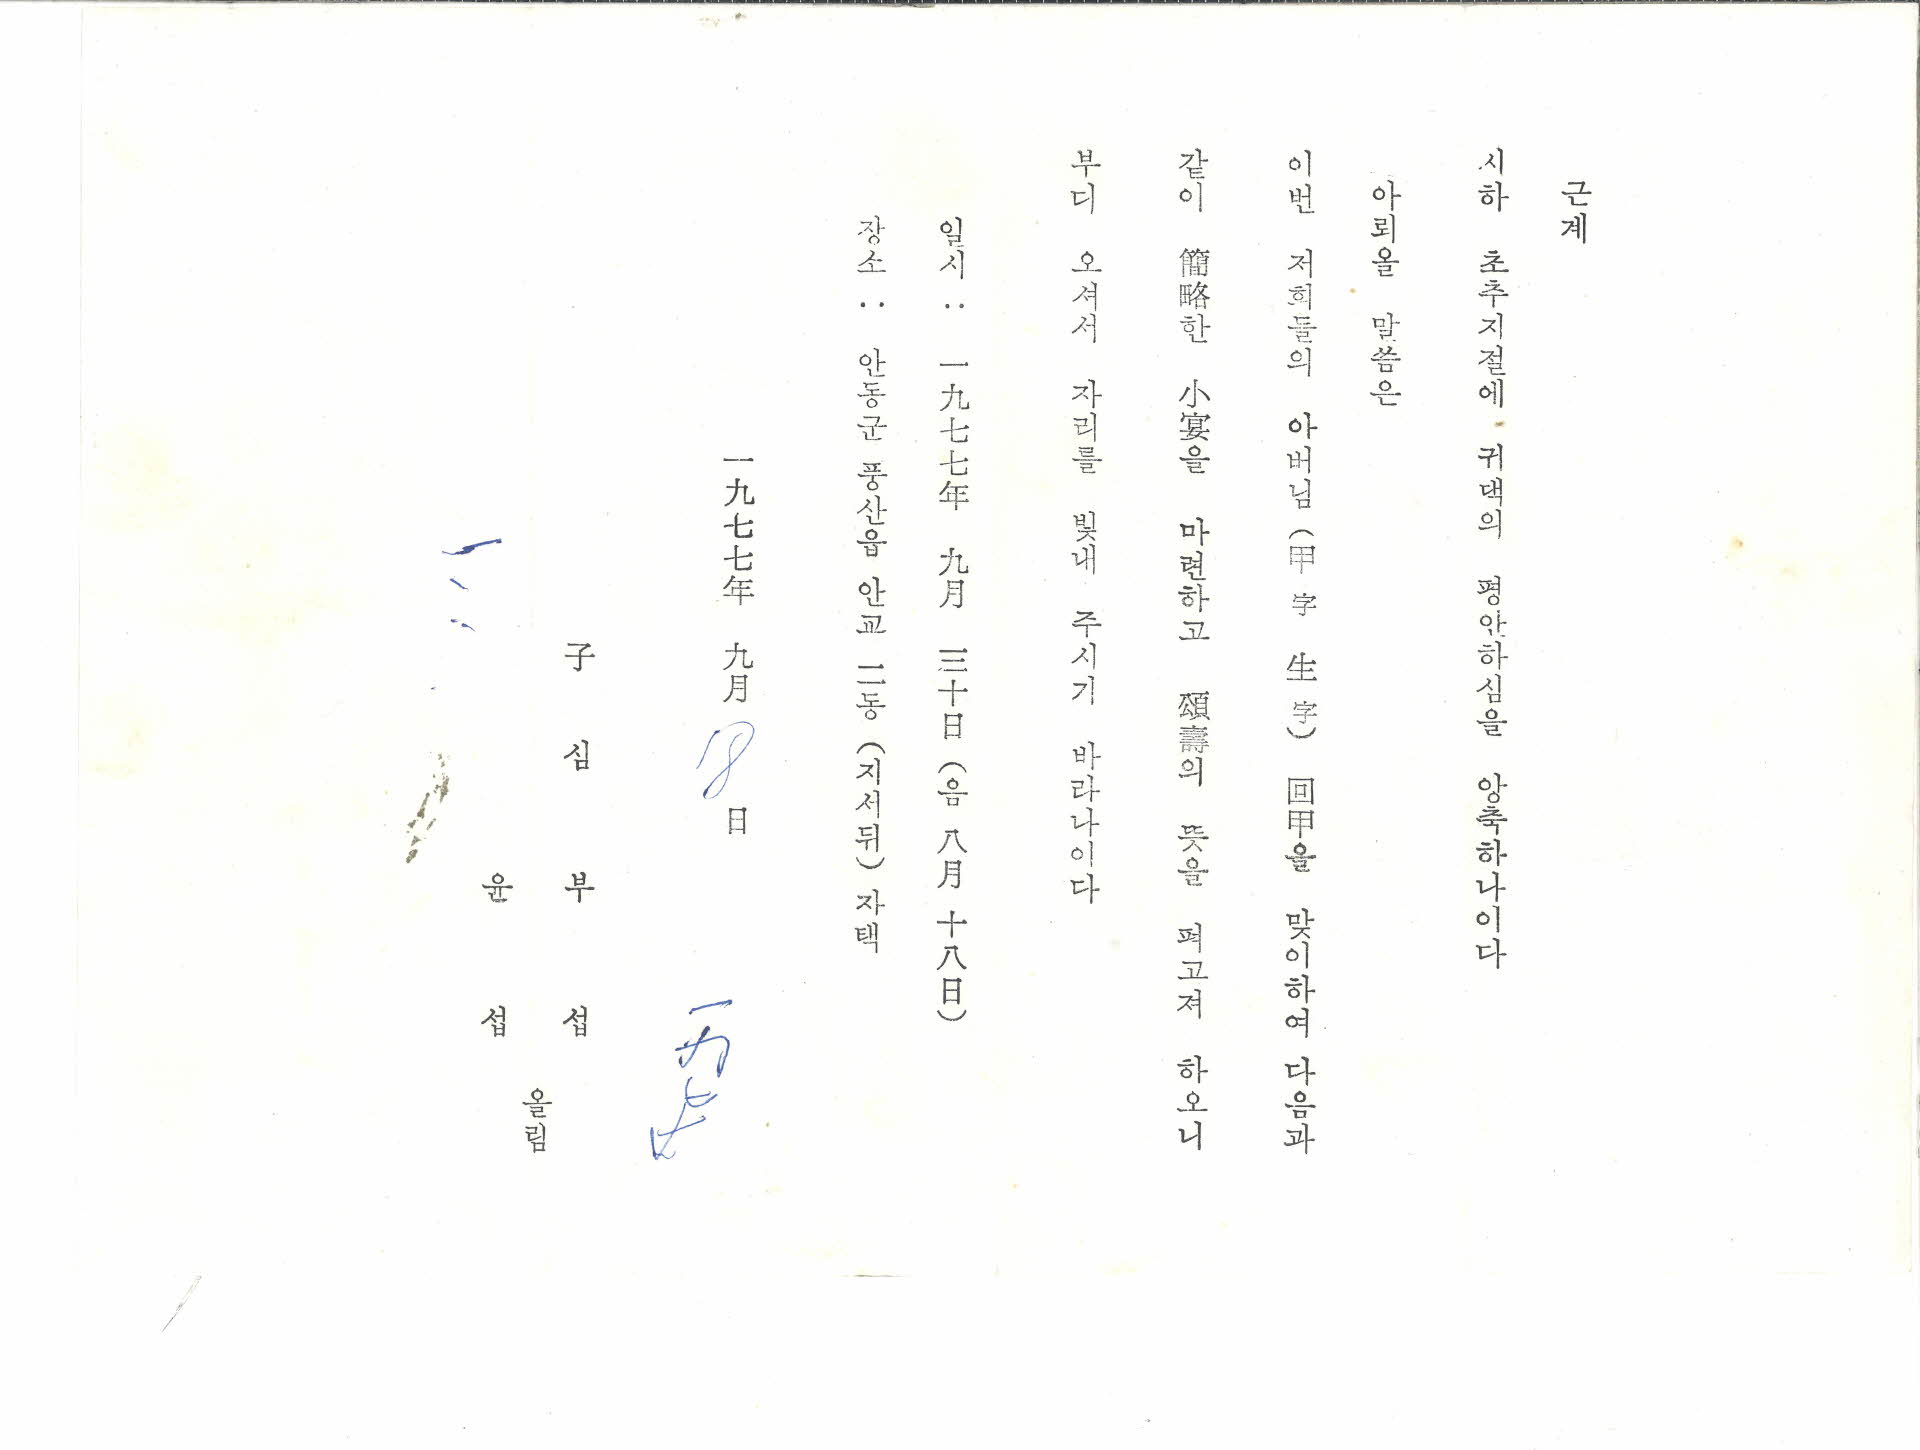 근계
시하 초추지절에 귀댁의 평안하심을 앙축하나이다
아뢰올 말씀은
이번 저희들의 아버님(甲字 生字) 回甲을 맞이하여 다음과
같이 簡略한 小宴을 마련하고 頌壽의 뜻을 펴고져 하오니
부디 오셔서 자리를 빛내 주시기 바라나이다
일시: 一九七七年 九月 三十日(음 八月 十八日)
장소: 안동군 풍산읍 안교 二동(지서뒤) 자택
一九七七年 九月 18 日
子 심 부 섭
윤 섭
올림